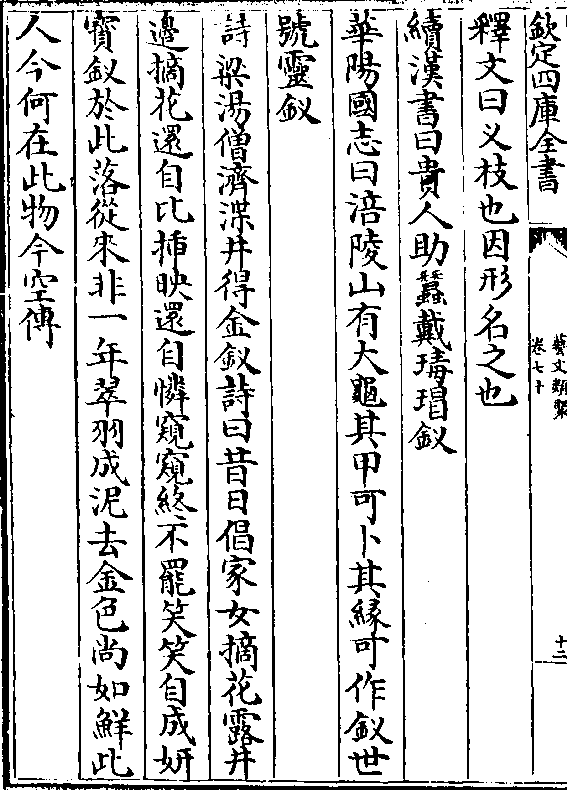 欽定四庫全書
藝文類聚
卷七十
十二
釋文曰义枝也因形名之也
續漢書曰貴人助蠶戴瑇瑁釵
華陽國志曰涪陵山有大龜其甲可卜其緣可作釵世
號靈釵
詩梁湯僧濟渫井得金釵詩曰昔日倡家女摘花露井
邊摘花還自比揷映還自憐窺窺終不罷笑笑自成妍
寶釵於此落從來非一年翠羽成泥去金色尚如鮮此
人今何在此物今空傳